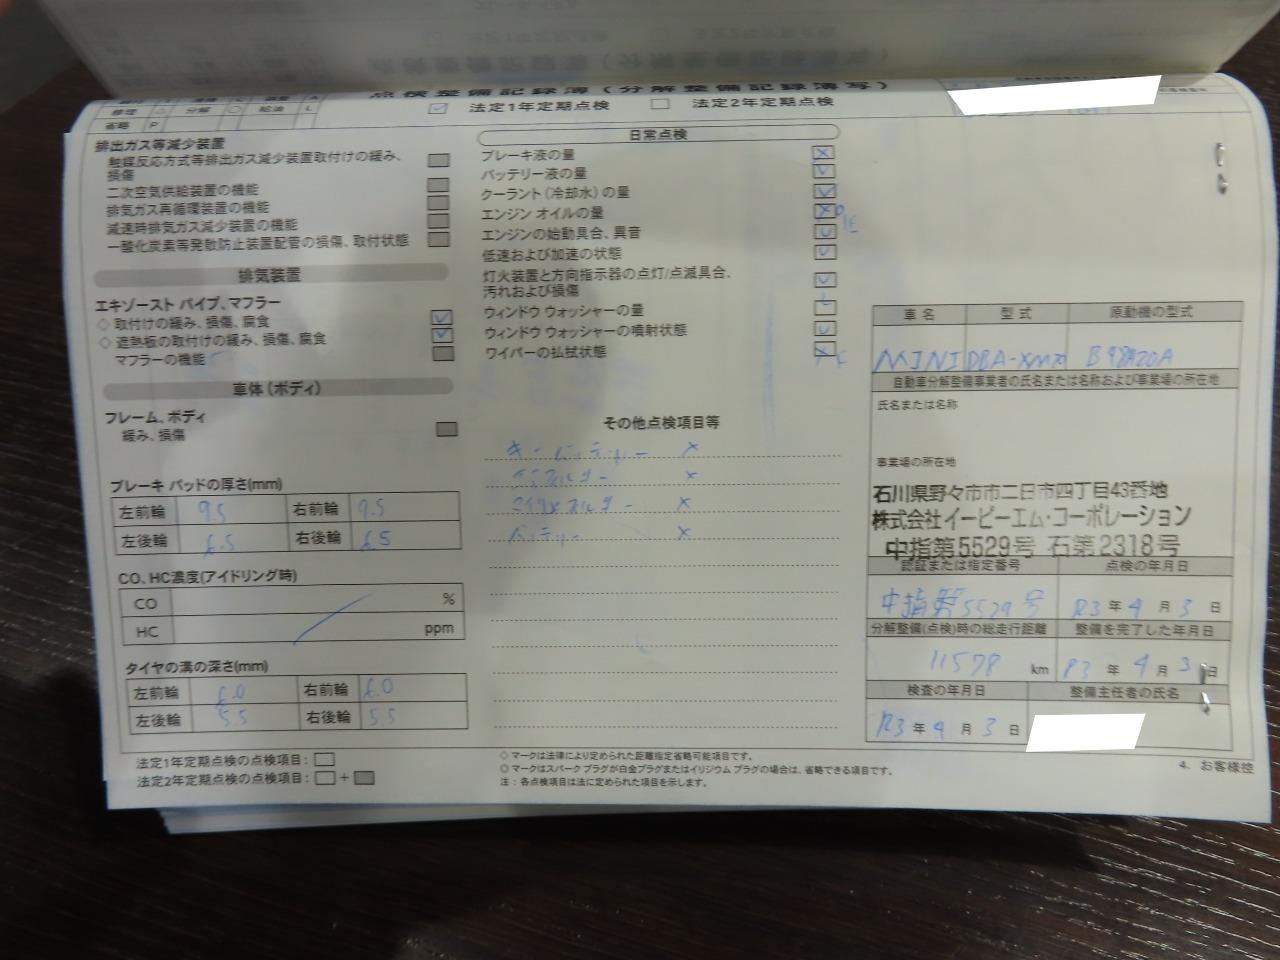 点検整備記録簿(分解整備記録簿写)
修理 △ 分解 ○ 給油 L
省略 P
法定1年定期点検 法定2年定期点検
排出ガス等減少装置
触媒反応方式等排出ガス減少装置取付けの緩み、
損傷
二次空気供給装置の機能
排気ガス再循環装置の機能
減速時排気ガス減少装置の機能
一酸化炭素等発散防止装置配管の損傷、取付状態
排気装置
エキゾースト パイプ、マフラー
◇ 取付けの緩み、損傷、腐食
◇ 遮熱板の取付けの緩み、損傷、腐食
マフラーの機能
車体(ボディ)
フレーム、ボディ
緩み、損傷
ブレーキ パッドの厚さ(mm)
左前輪 9.5 右前輪 9.5
左後輪 6.5 右後輪 6.5
CO、HC濃度(アイドリング時)
CO %
HC ppm
タイヤの溝の深さ(mm)
左前輪 6.0 右前輪 6.0
左後輪 5.5 右後輪 5.5
法定1年定期点検の点検項目:
法定2年定期点検の点検項目: +
日常点検
ブレーキ液の量
バッテリー液の量
クーラント(冷却水)の量
エンジン オイルの量
エンジンの始動具合、異音
低速および加速の状態
灯火装置と方向指示器の点灯/点滅具合、
汚れおよび損傷
ウィンドウ ウォッシャーの量
ウィンドウ ウォッシャーの噴射状態
ワイパーの払拭状態
その他点検項目等
キーバッテリー ×
×
×
バッテリー ×
◇ マークは法律により定められた距離指定省略可能項目です。
◎ マークはスパーク プラグが白金プラグまたはイリジウム プラグの場合は、省略できる項目です。
注:各点検項目は法に定められた項目を示します。
車名 型式 原動機の型式
MINI DBA-XM20 B48A20A
自動車分解整備事業者の氏名または名称および事業場の所在地
氏名または名称
事業場の所在地
石川県野々市市二日市四丁目43番地
株式会社イーピーエム・コーポレーション
中指第5529号 石第2318号
認証または指定番号 点検の年月日
中指第5529号 R3年4月3日
分解整備(点検)時の総走行距離 整備を完了した年月日
11578 km R3年4月3日
検査の年月日 整備主任者の氏名
R3年4月3日
4. お客様控